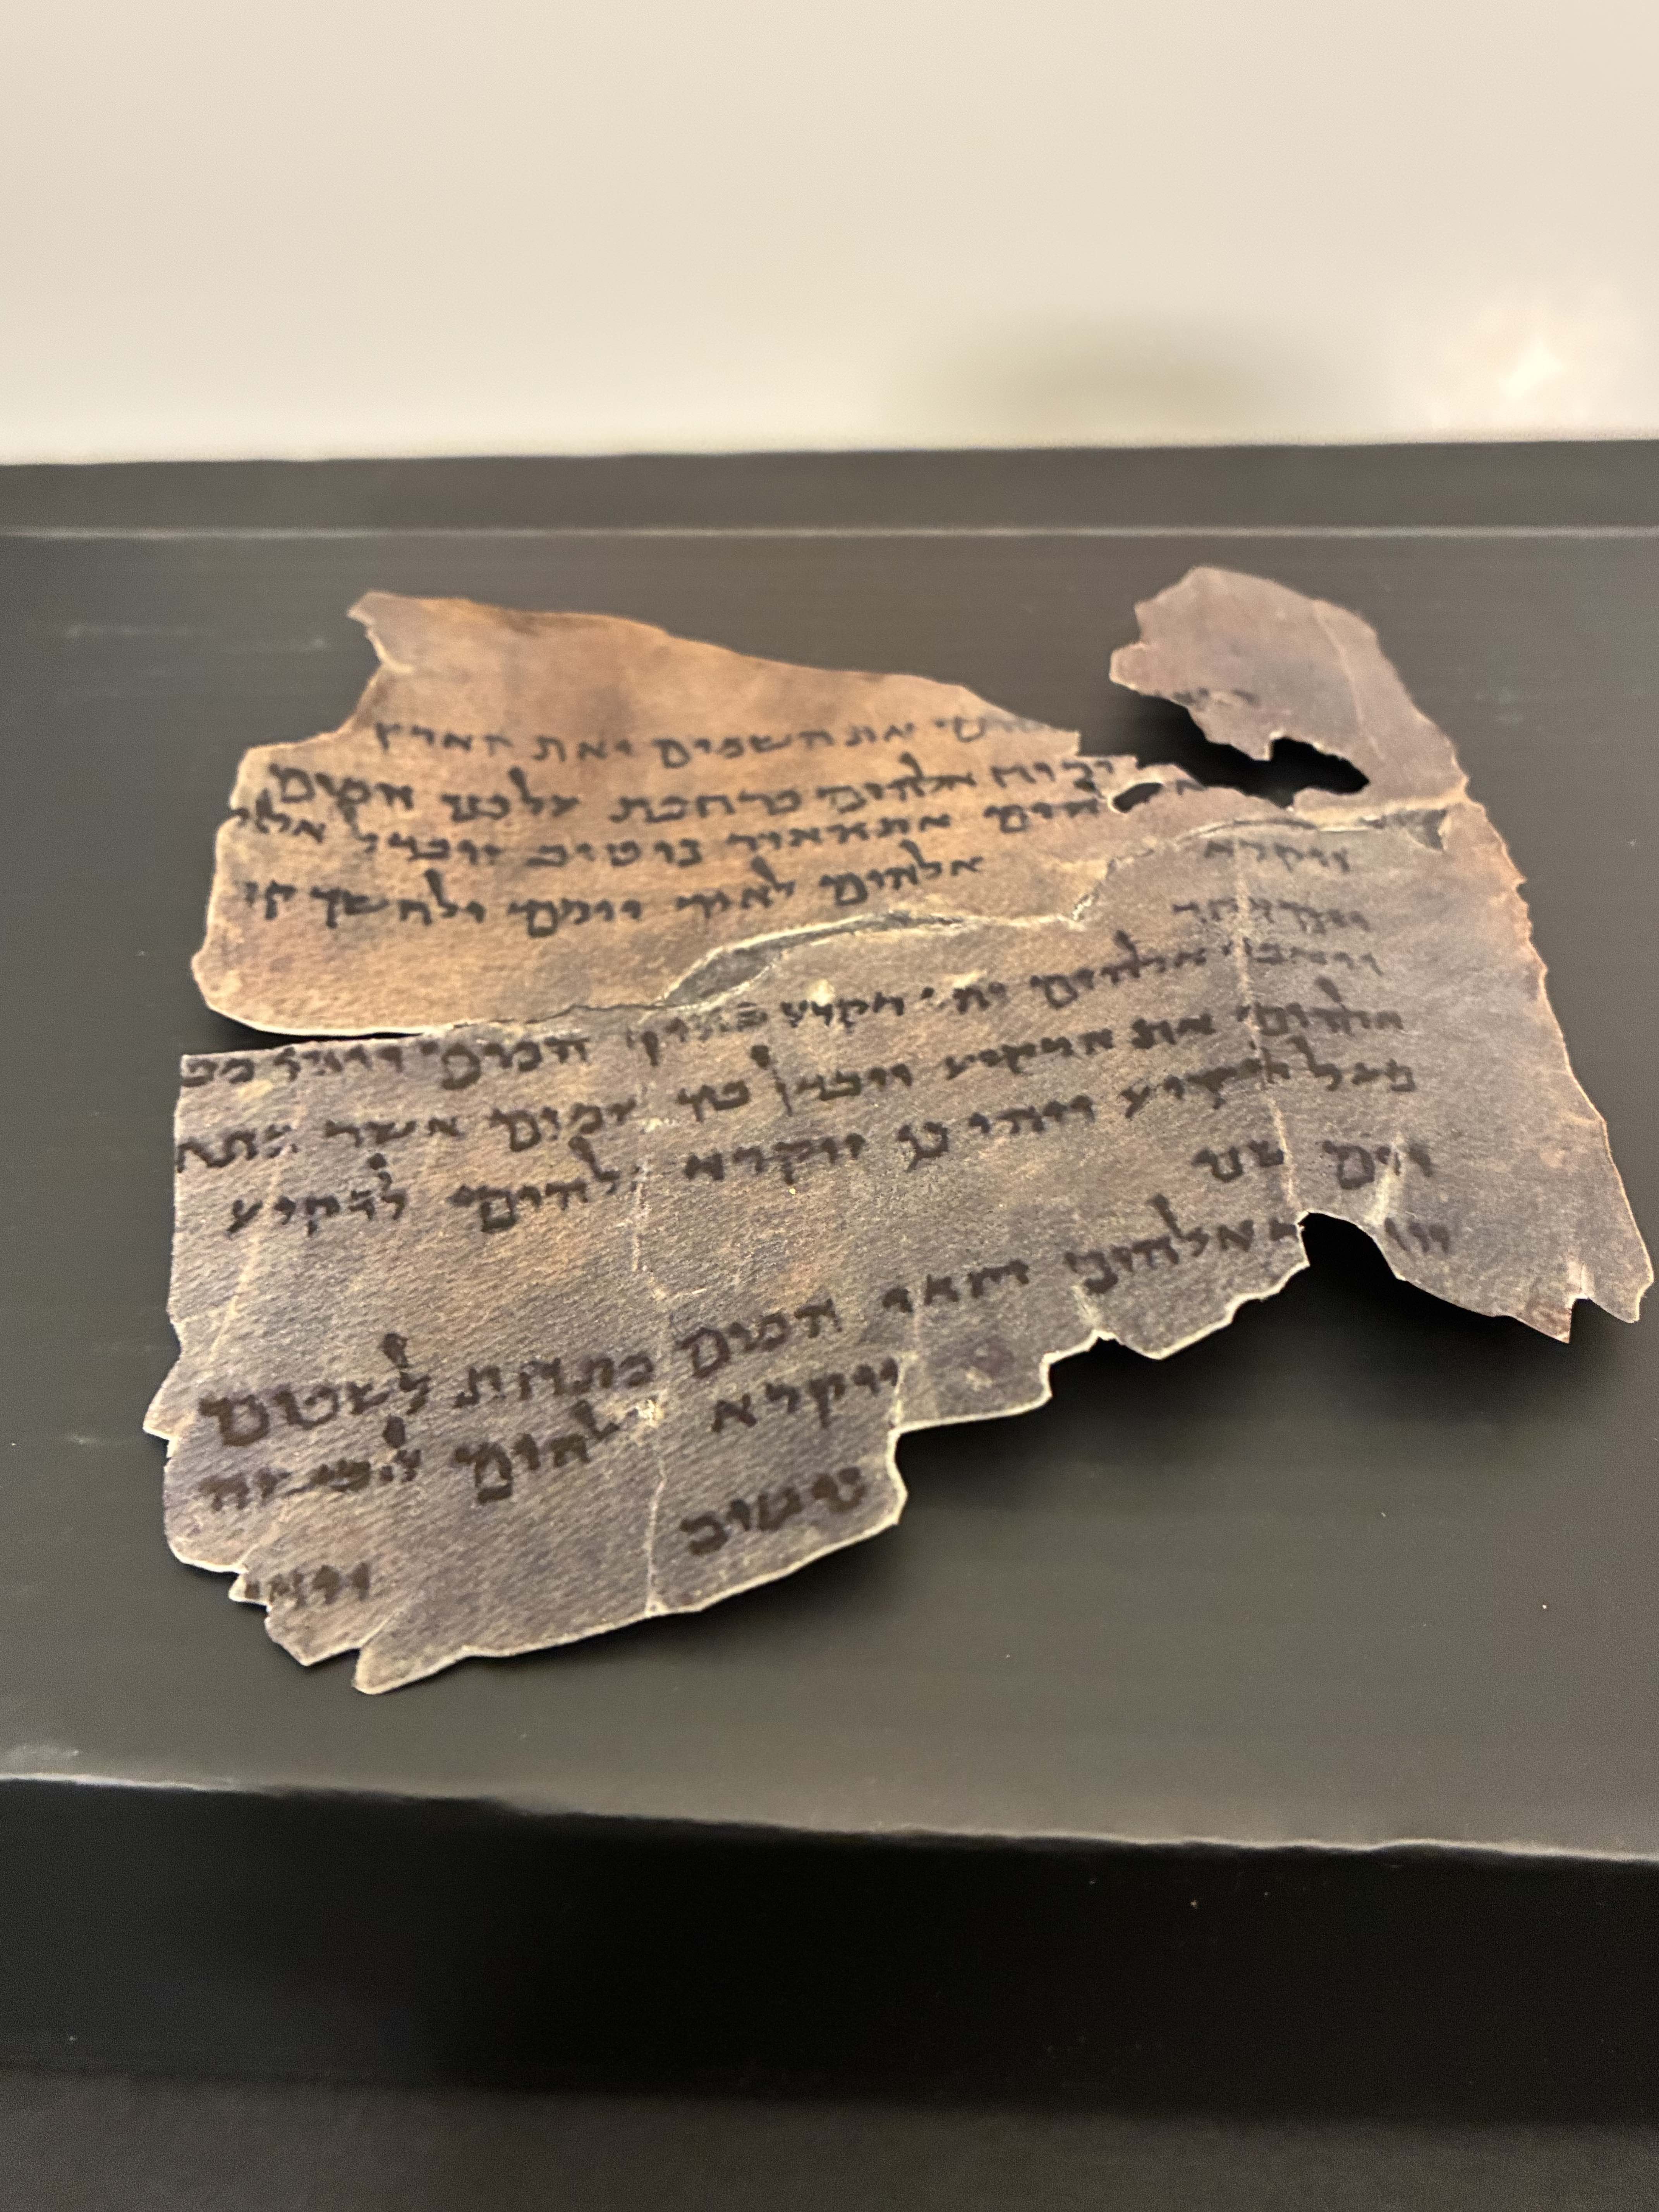 את השמים ואת הארץ
ורוח אלהים מרחפת על פני המים
אלהים את האור כי טוב ויבדל אלהי
אלהים לאור יומם ולחשך קר
ויקרא
יום אחד
ויאמר אלהים יהי רקיע בתוך המים ויהי מב
אלהים את הרקיע ויבדל בין המים אשר מתחת
מעל לרקיע ויהי כן ויקרא אלהים לרקיע
יום שני
אלהים המים מתחת לשמים
ויקרא אלהים ליבשה
כי טוב
ויהי